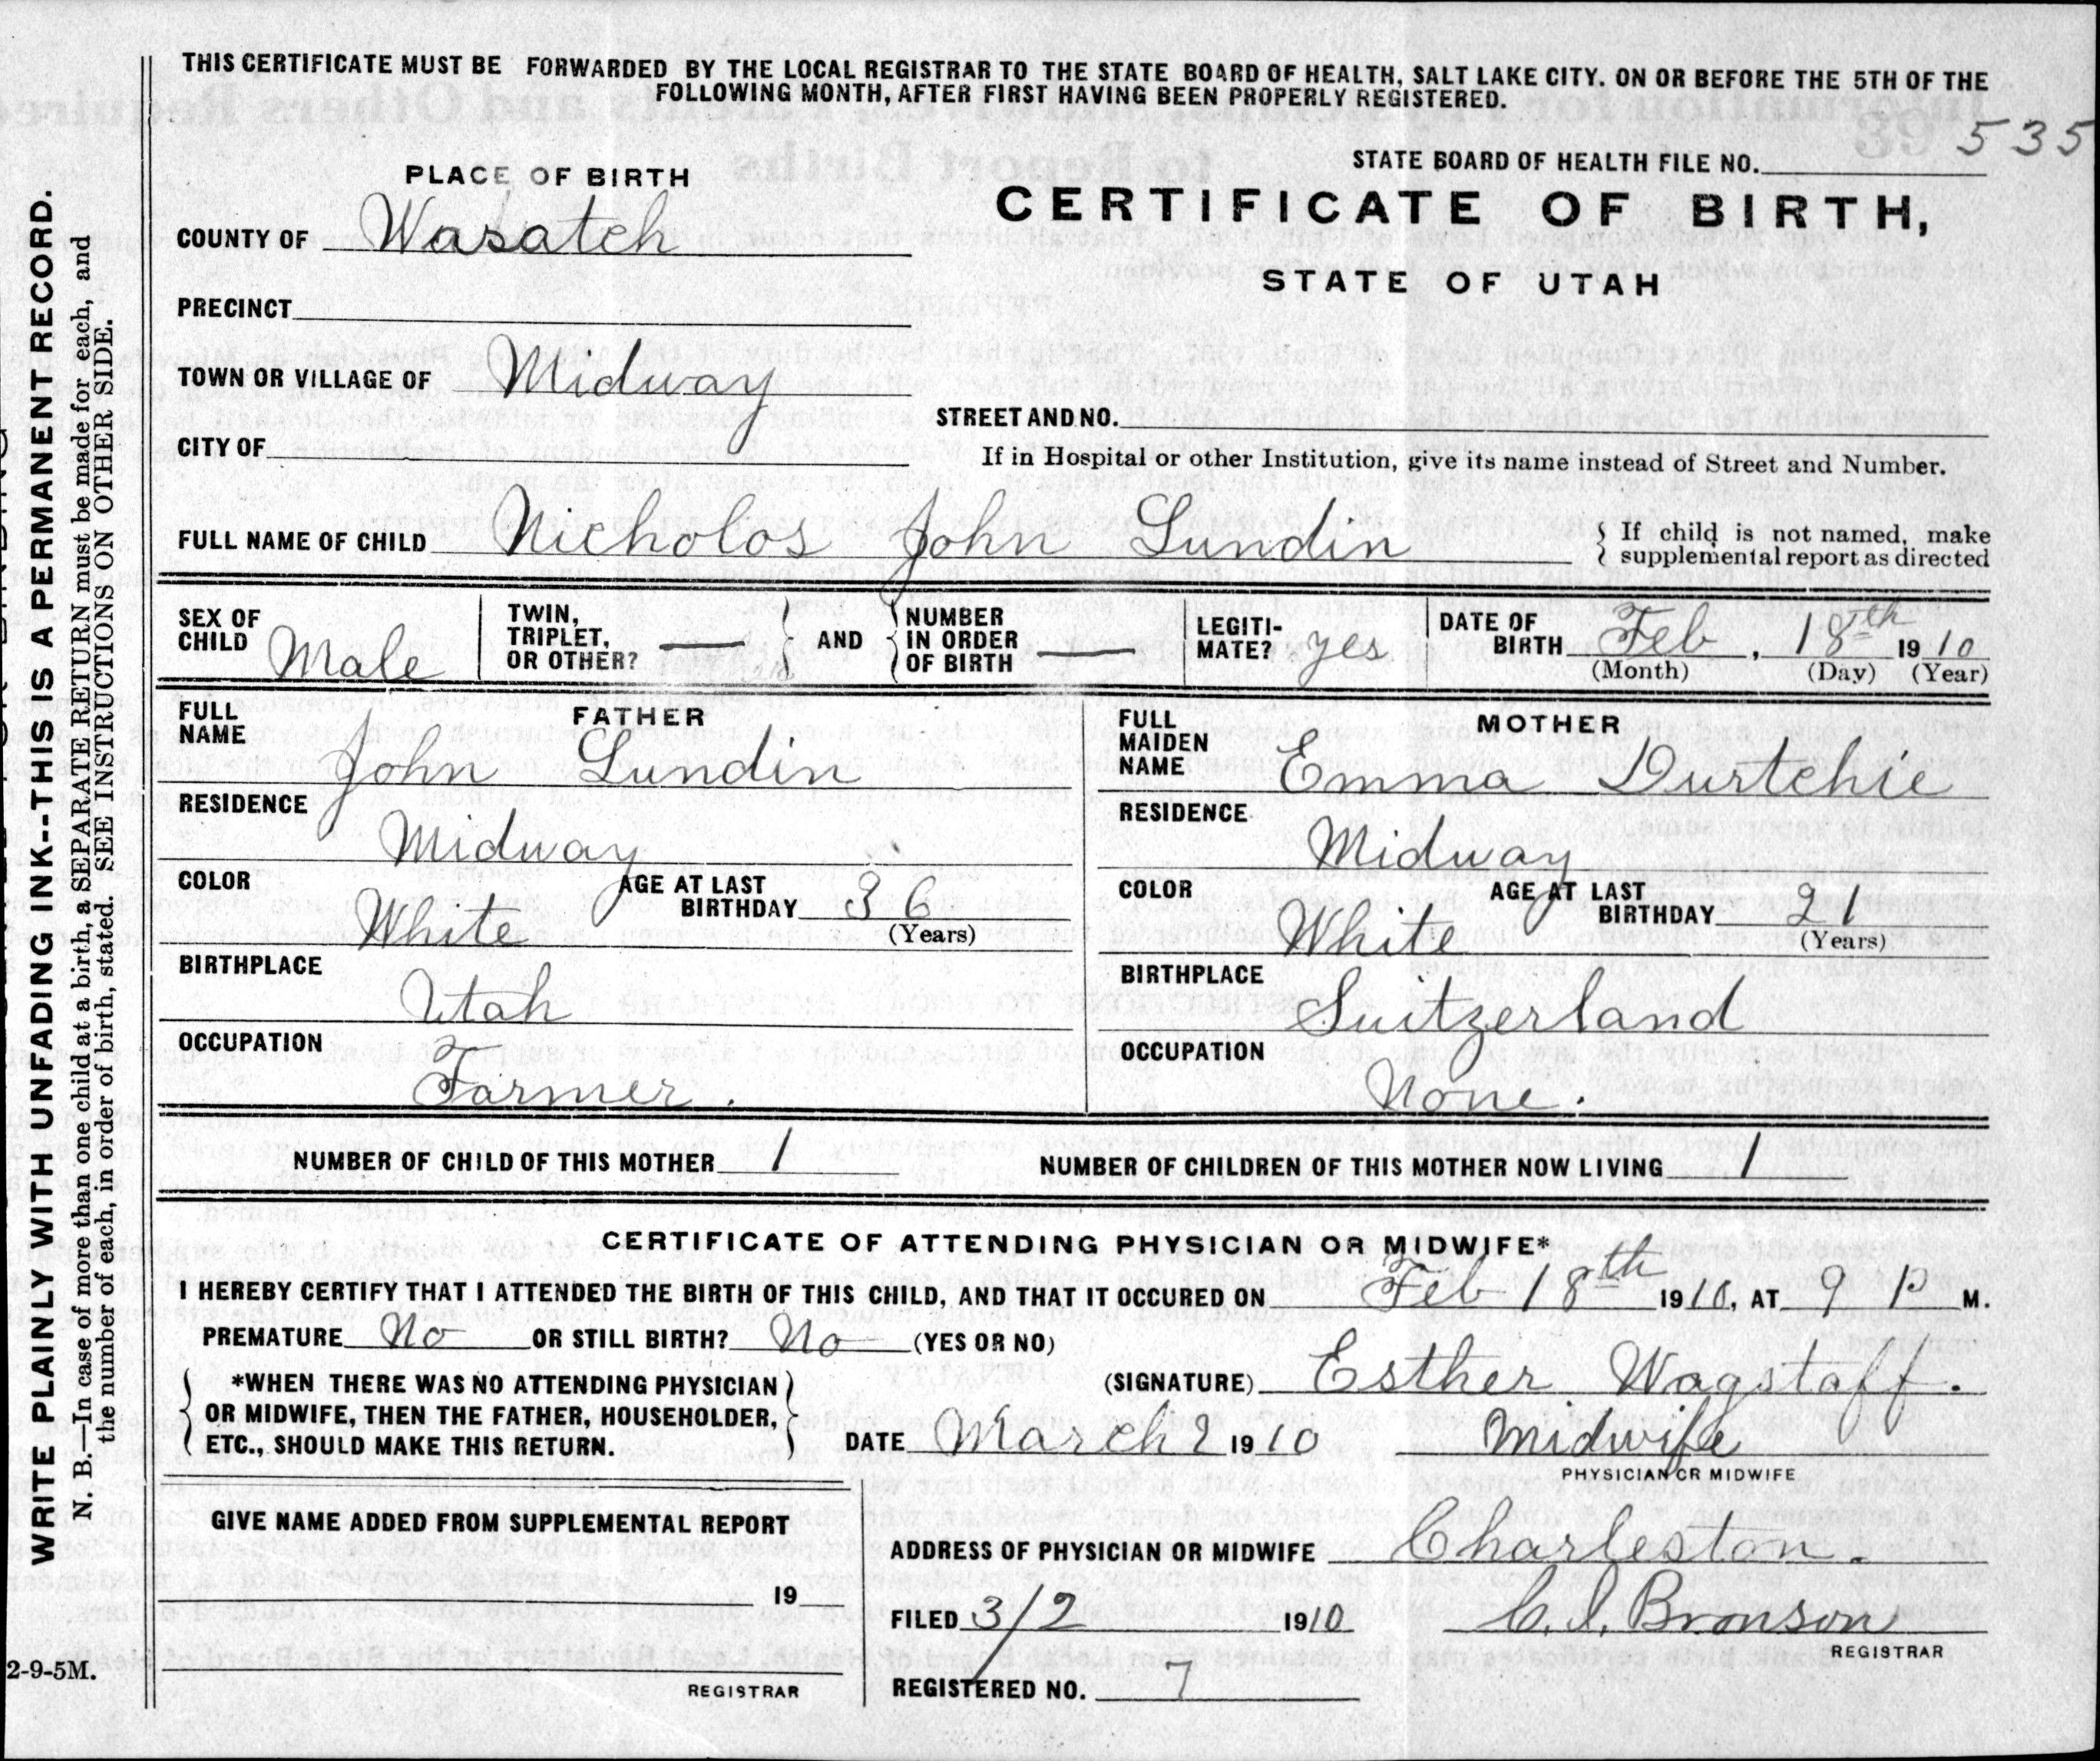 THIS CERTIFICATE MUST BE FORWARDED BY THE LOCAL REGISTRAR TO THE STATE BOARD OF HEALTH, SALT LAKE CITY. ON OR BEFORE THE 5TH OF THE
FOLLOWING MONTH, AFTER FIRST HAVING BEEN PROPERLY REGISTERED.
535
STATE BOARD OF HEALTH FILE NO.
PLACE OF BIRTH
CERTIFICATE OF BIRTH,
STATE OF UTAH
COUNTY OF Wasatch
PRECINCT
TOWN OR VILLAGE OF Midway
STREET AND NO.
CITY OF
If in Hospital or other Institution, give its name instead of Street and Number.
FULL NAME OF CHILD Nicholos John Lundin
If child is not named, make
supplemental report as directed
SEX OF CHILD Male
TWIN, TRIPLET, OR OTHER? — AND NUMBER IN ORDER OF BIRTH —
LEGITI-MATE? yes
DATE OF BIRTH Feb, 18th 1910
(Month) (Day) (Year)
FATHER
FULL NAME John Lundin
RESIDENCE
Midway
COLOR White AGE AT LAST BIRTHDAY 36
(Years)
BIRTHPLACE
Utah
OCCUPATION
Farmer.
MOTHER
FULL MAIDEN NAME Emma Durtchie
RESIDENCE
Midway
COLOR White AGE AT LAST BIRTHDAY 21
(Years)
BIRTHPLACE
Suitzerland
OCCUPATION
None.
NUMBER OF CHILD OF THIS MOTHER 1 NUMBER OF CHILDREN OF THIS MOTHER NOW LIVING 1
CERTIFICATE OF ATTENDING PHYSICIAN OR MIDWIFE*
I HEREBY CERTIFY THAT I ATTENDED THE BIRTH OF THIS CHILD, AND THAT IT OCCURED ON Feb 18th 1910, AT 9 P M.
PREMATURE No OR STILL BIRTH? No (YES OR NO)
*WHEN THERE WAS NO ATTENDING PHYSICIAN
OR MIDWIFE, THEN THE FATHER, HOUSEHOLDER,
ETC., SHOULD MAKE THIS RETURN.
(SIGNATURE) Esther Wagstaff.
DATE March 2 1910 Midwife
PHYSICIAN OR MIDWIFE
GIVE NAME ADDED FROM SUPPLEMENTAL REPORT
19
REGISTRAR
ADDRESS OF PHYSICIAN OR MIDWIFE Charleston.
FILED 3/2 1910 C. I. Bronson
REGISTRAR
REGISTERED NO. 7
2-9-5M.
WRITE PLAINLY WITH UNFADING INK--THIS IS A PERMANENT RECORD.
N. B.—In case of more than one child at a birth, a SEPARATE RETURN must be made for each, and
the number of each, in order of birth, stated. SEE INSTRUCTIONS ON OTHER SIDE.